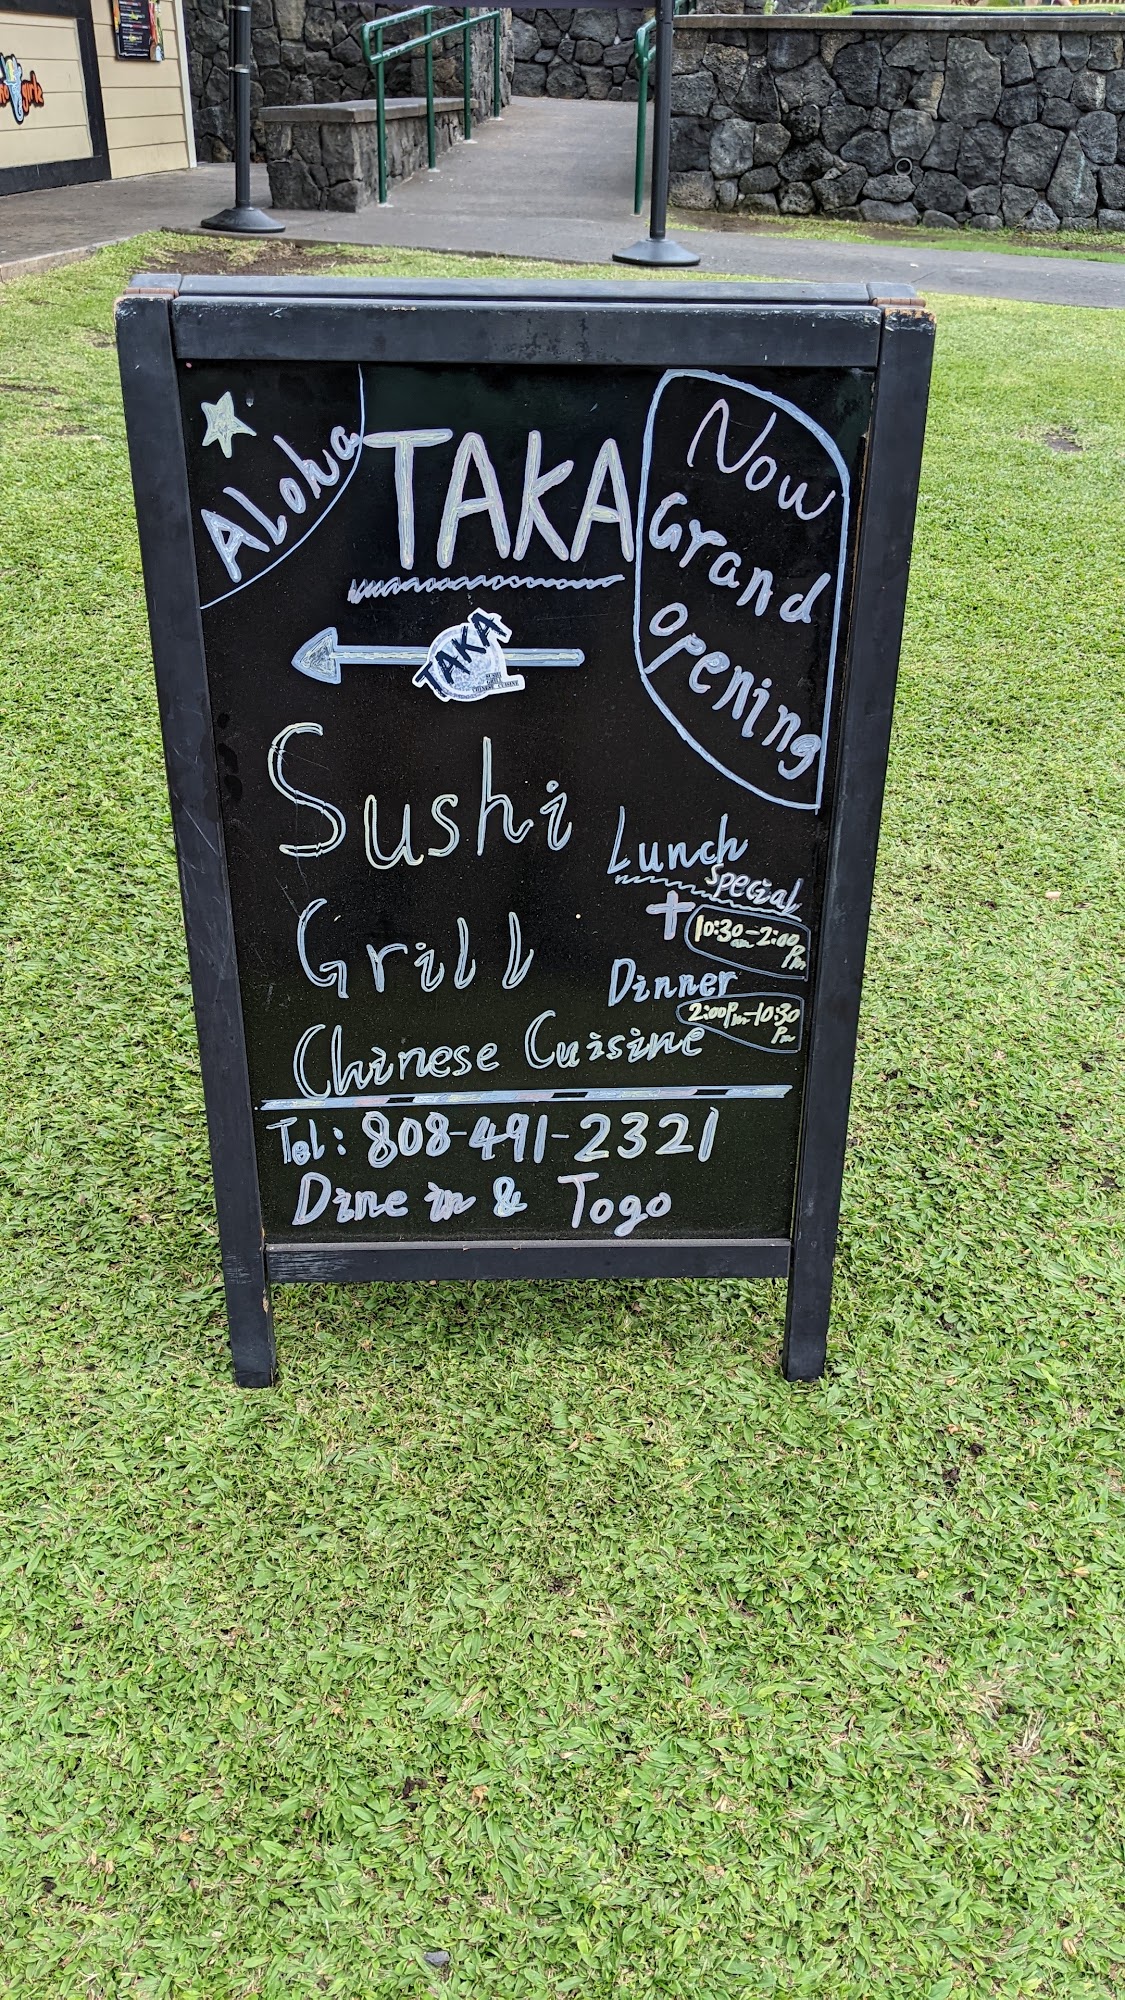 ALoha
TAKA
Now
Grand
opening
TAKA
SUSHI
GRILL
CHINESE CUISINE
Sushi
Grill
Chinese Cuisine
Lunch
Special
+
10:30am-2:00pm
Dinner
2:00pm-10:30pm
Tel: 808-491-2321
Dine in & Togo